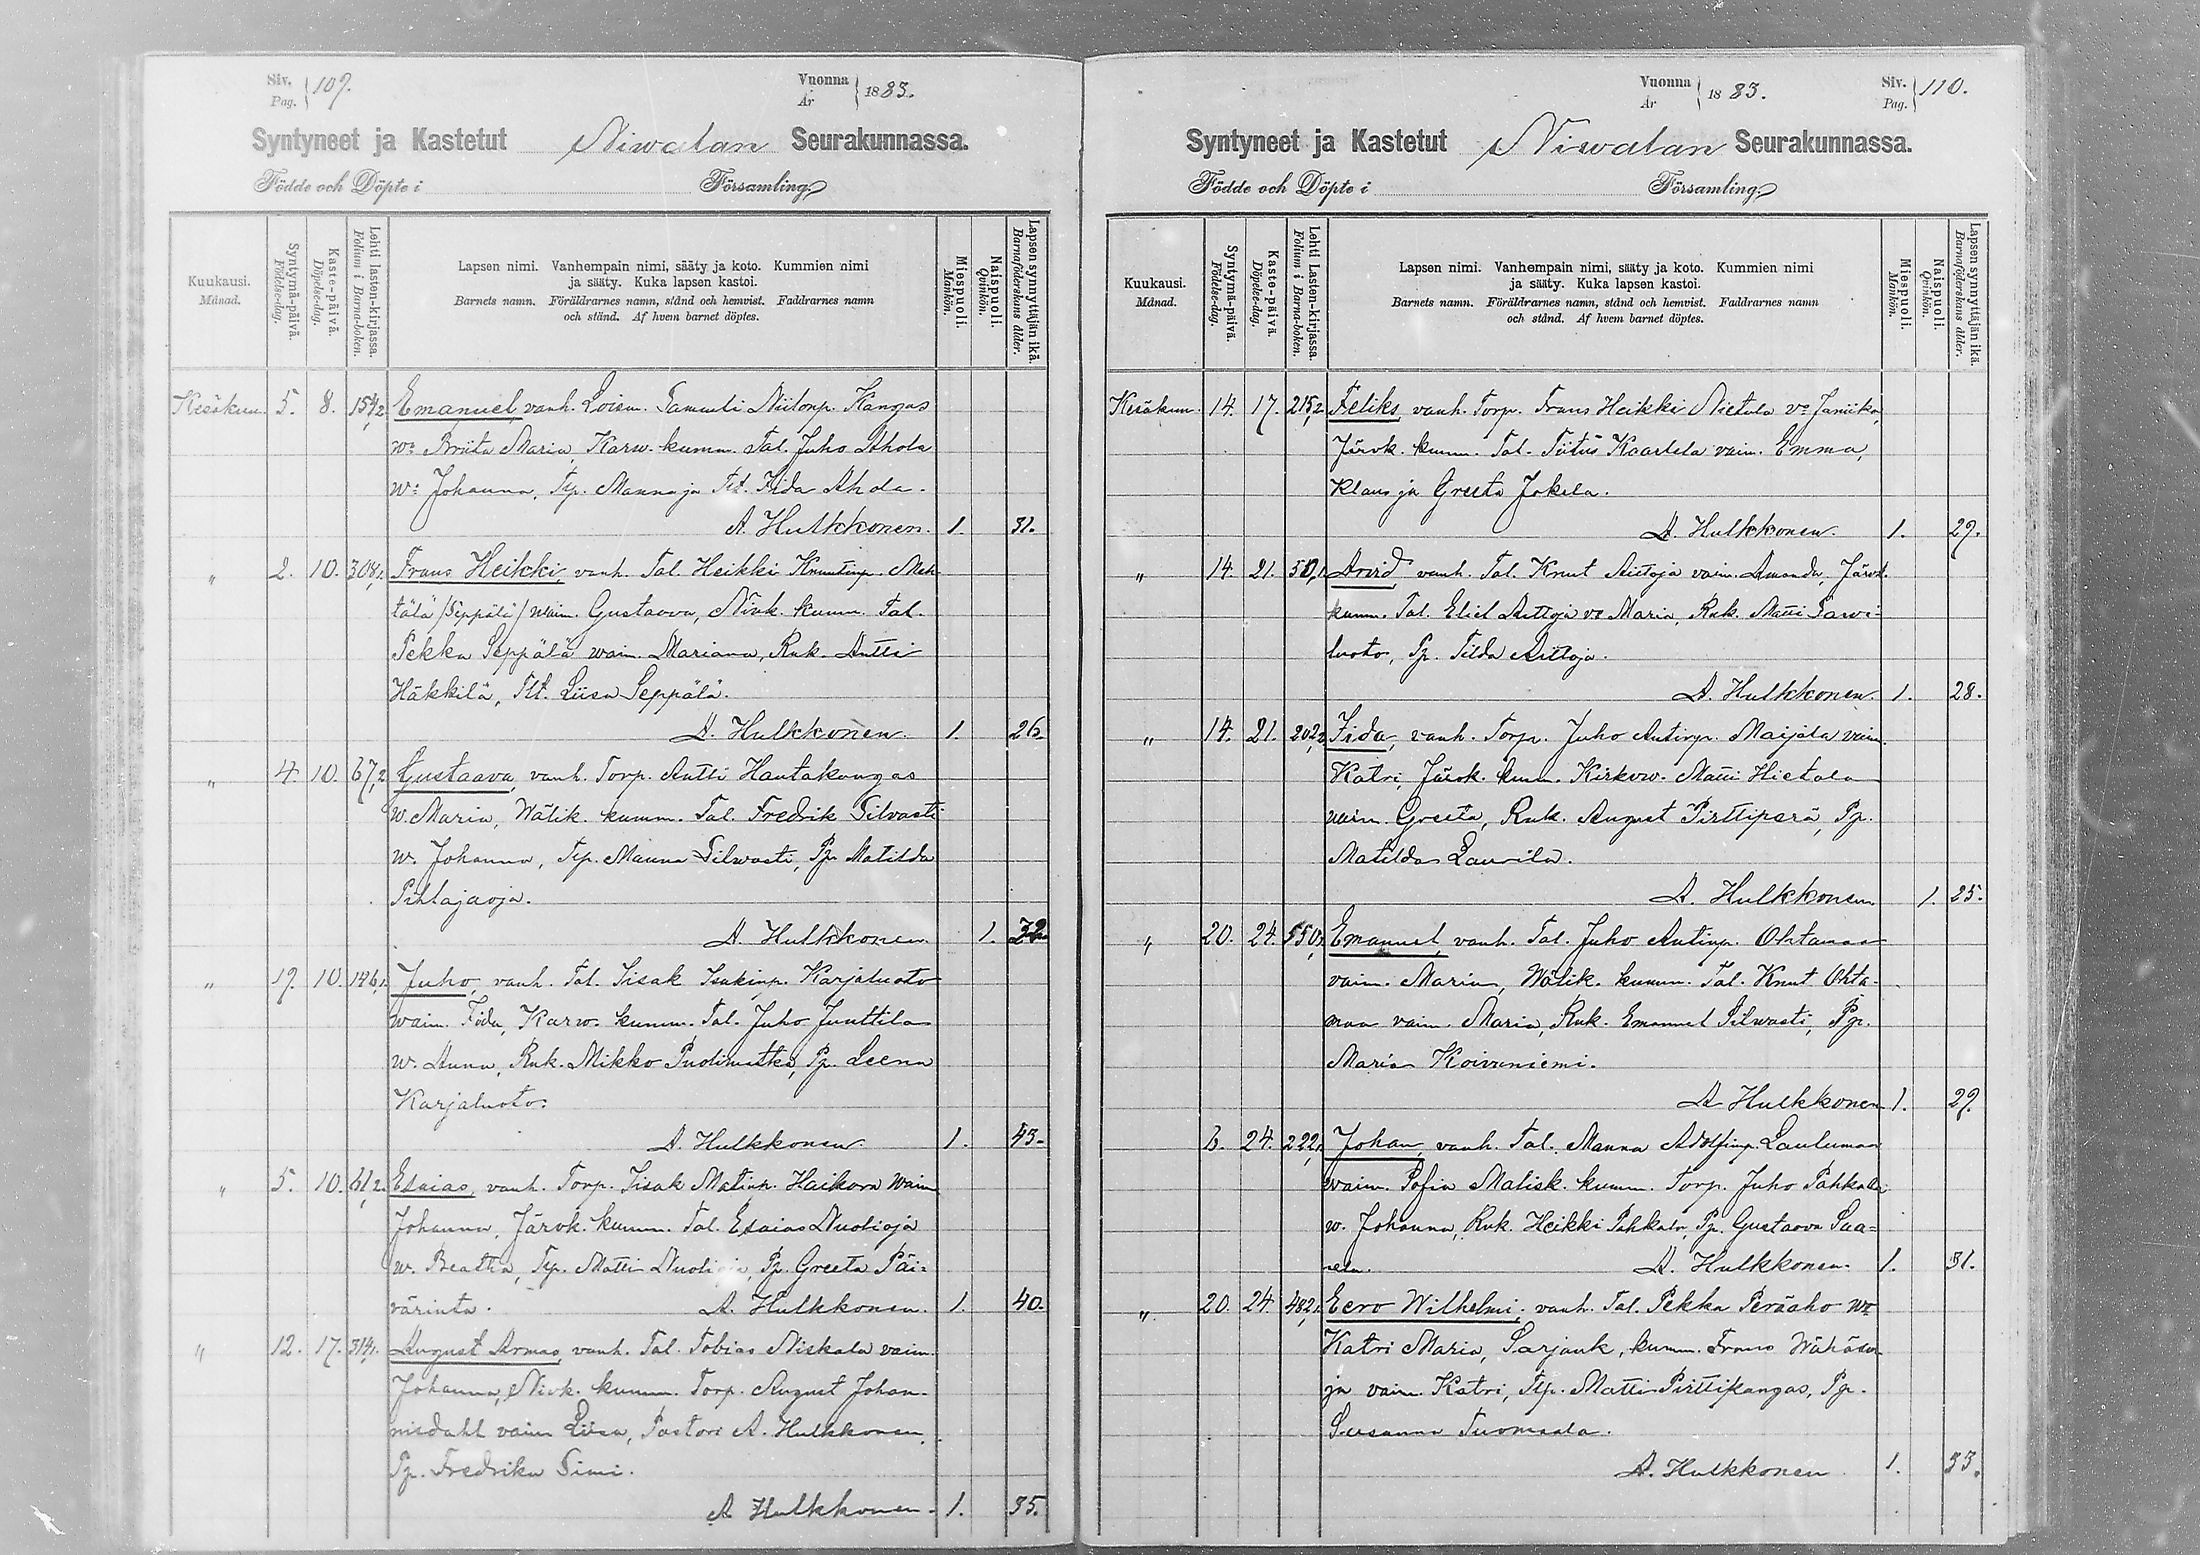 Siv. Pag. 109.
Vuonna År 1883.
Syntyneet ja Kastetut Niwalan Seurakunnassa.
Födde och Döpte i Församling
Kuukausi. Månad.
Syntymä-päivä. Födelse-dag.
Kaste-päivä. Döpelse-dag.
Lehti lasten-kirjassa. Folium i Barna-boken.
Lapsen nimi. Vanhempain nimi, sääty ja koto. Kummien nimi
ja sääty. Kuka lapsen kastoi.
Barnets namn. Föräldrarnes namn, stånd och hemvist. Faddrarnes namn
och stånd. Af hvem barnet döptes.
Miespuoli. Mankön.
Naispuoli. Qvinkön.
Lapsen synnyttäjän ikä. Barnaföderskans ålder.
Kesäkuu. 5. 8. 154,2 Emanuel, vanh. Loism. Sammeli Niilonp. Kangas
wo Briita Maria, Karw. kumm. Tal. Juho Ahola
w: Johanna, Tlp. Manna ja Tlt. Fida Ahola.
A. Hulkkonen. 1. 31.
" 2. 10. 308,1. Frans Heikki, vanh. Tal. Heikki Knuutinp. Meh
tälä /Seppälä/ waim. Gustaava, Nivk. kumm. Tal.
Pekka Seppälä waim. Mariana, Ruk. Antti
Häkkilä, Tlt. Liisa Seppälä.
A. Hulkkonen. 1. 26.
" 4. 10. 67,2 Gustaava, vanh. Torp. Antti Hautakangas
w. Maria, Wälik. kumm. Tal. Fredrik Silvasti
w. Johanna, Tlp. Manna Silwasti, Pp. Matilda
Pihlajaoja.
A. Hulkkonen. 1. 32.
" 19. 10. 146,1. Juho, vanh. Tal. Iisak Isakinp. Karjaluoto
waim. Fiida, Karw. kumm. Tal. Juho Junttila
w. Anna, Ruk. Mikko Puolimatka, Pp. Leena
Karjaluoto.
A. Hulkkonen. 1. 43.
" 5. 10. 61,2. Esaias, vanh. Torp. Iisak Matinp. Haikara waim
Johanna, Järvk. kumm. Tal. Esaias Nuolioja
w. Beatha, Tlp. Matti Nuolioja, Pp. Greeta Päi=
värinta. A. Hulkkonen. 1. 40.
" 12. 17. 314,1. August Armas, vanh. Tal. Tobias Niskala vaim.
Johanna, Nivk. kumm. Torp. August Johan-
nisdahl vaim Liisa, Pastori A. Hulkkonen,
Pp. Fredrika Simi.
A Hulkkonen. 1. 35.
Vuonna År 1883.
Siv. Pag. 110.
Syntyneet ja Kastetut Niwalan Seurakunnassa.
Födde och Döpte i Församling
Kuukausi. Månad.
Syntymä-päivä. Födelse-dag.
Kaste-päivä. Döpelse-dag.
Lehti lasten-kirjassa. Folium i Barna-boken.
Lapsen nimi. Vanhempain nimi, sääty ja koto. Kummien nimi
ja sääty. Kuka lapsen kastoi.
Barnets namn. Föräldrarnes namn, stånd och hemvist. Faddrarnes namn
och stånd. Af hvem barnet döptes.
Miespuoli. Mankön.
Naispuoli. Qvinkön.
Lapsen synnyttäjän ikä. Barnaföderskans ålder.
Kesäkuu. 14. 17. 215,2 Feliks, vanh. Torp. Frans Heikki Nietula vo Janiika,
Järvk. kumm. Tal. Tiitus Kaartela vaim. Emma,
Klaus ja Greeta Jokela.
A. Hulkkonen. 1. 29.
" 14. 21. Arvid vanh. Tal. Knut Aittoja vaim. Amanda, Järvk.
kumm. Tal. Eliel Aittoja vo Maria, Ruk. Matti Sarvi-
luoto, Pp. Tilda Aittoja.
A. Hulkkonen. 1. 28.
" 14. 21. 202,2 Fida, vanh. Torp. Juho Antinp. Maijala vaim.
Katri, Järvk. kumm. Kirkow. Matti Hietala
vaim. Greeta, Ruk. August Pirttiperä, Pp.
Matilda Laurila.
A. Hulkkonen 1. 25.
" 20. 24. 550, Emanuel, vanh. Tal. Juho Antinp. Ohtamaa
vaim. Maria, Wälik. kumm. Tal. Knut Ohta-
maa vaim. Maria, Ruk. Emanuel Silwasti, Pp.
Maria Koivuniemi.
A Hulkkonen 1. 29.
6. 24. 222,1 Johan, vanh. Tal. Manna Adolfinp. Lauluman
waim. Sofia Malisk. kumm. Torp. Juho Pahkala
w. Johanna, Ruk. Heikki Pahkala, Pp. Gustaava Saa=
nen. A. Hulkkonen. 1. 31.
" 20. 24. 482,1. Eero Wilhelmi, vanh. Tal. Pekka Peräaho wo
Katri Maria, Sarjank, kumm. Frans
ja vaim. Katri, Tlp. Matti Pirttikangas, Pp.
Susanna Tuomaala.
A. Hulkkonen 1. 33.